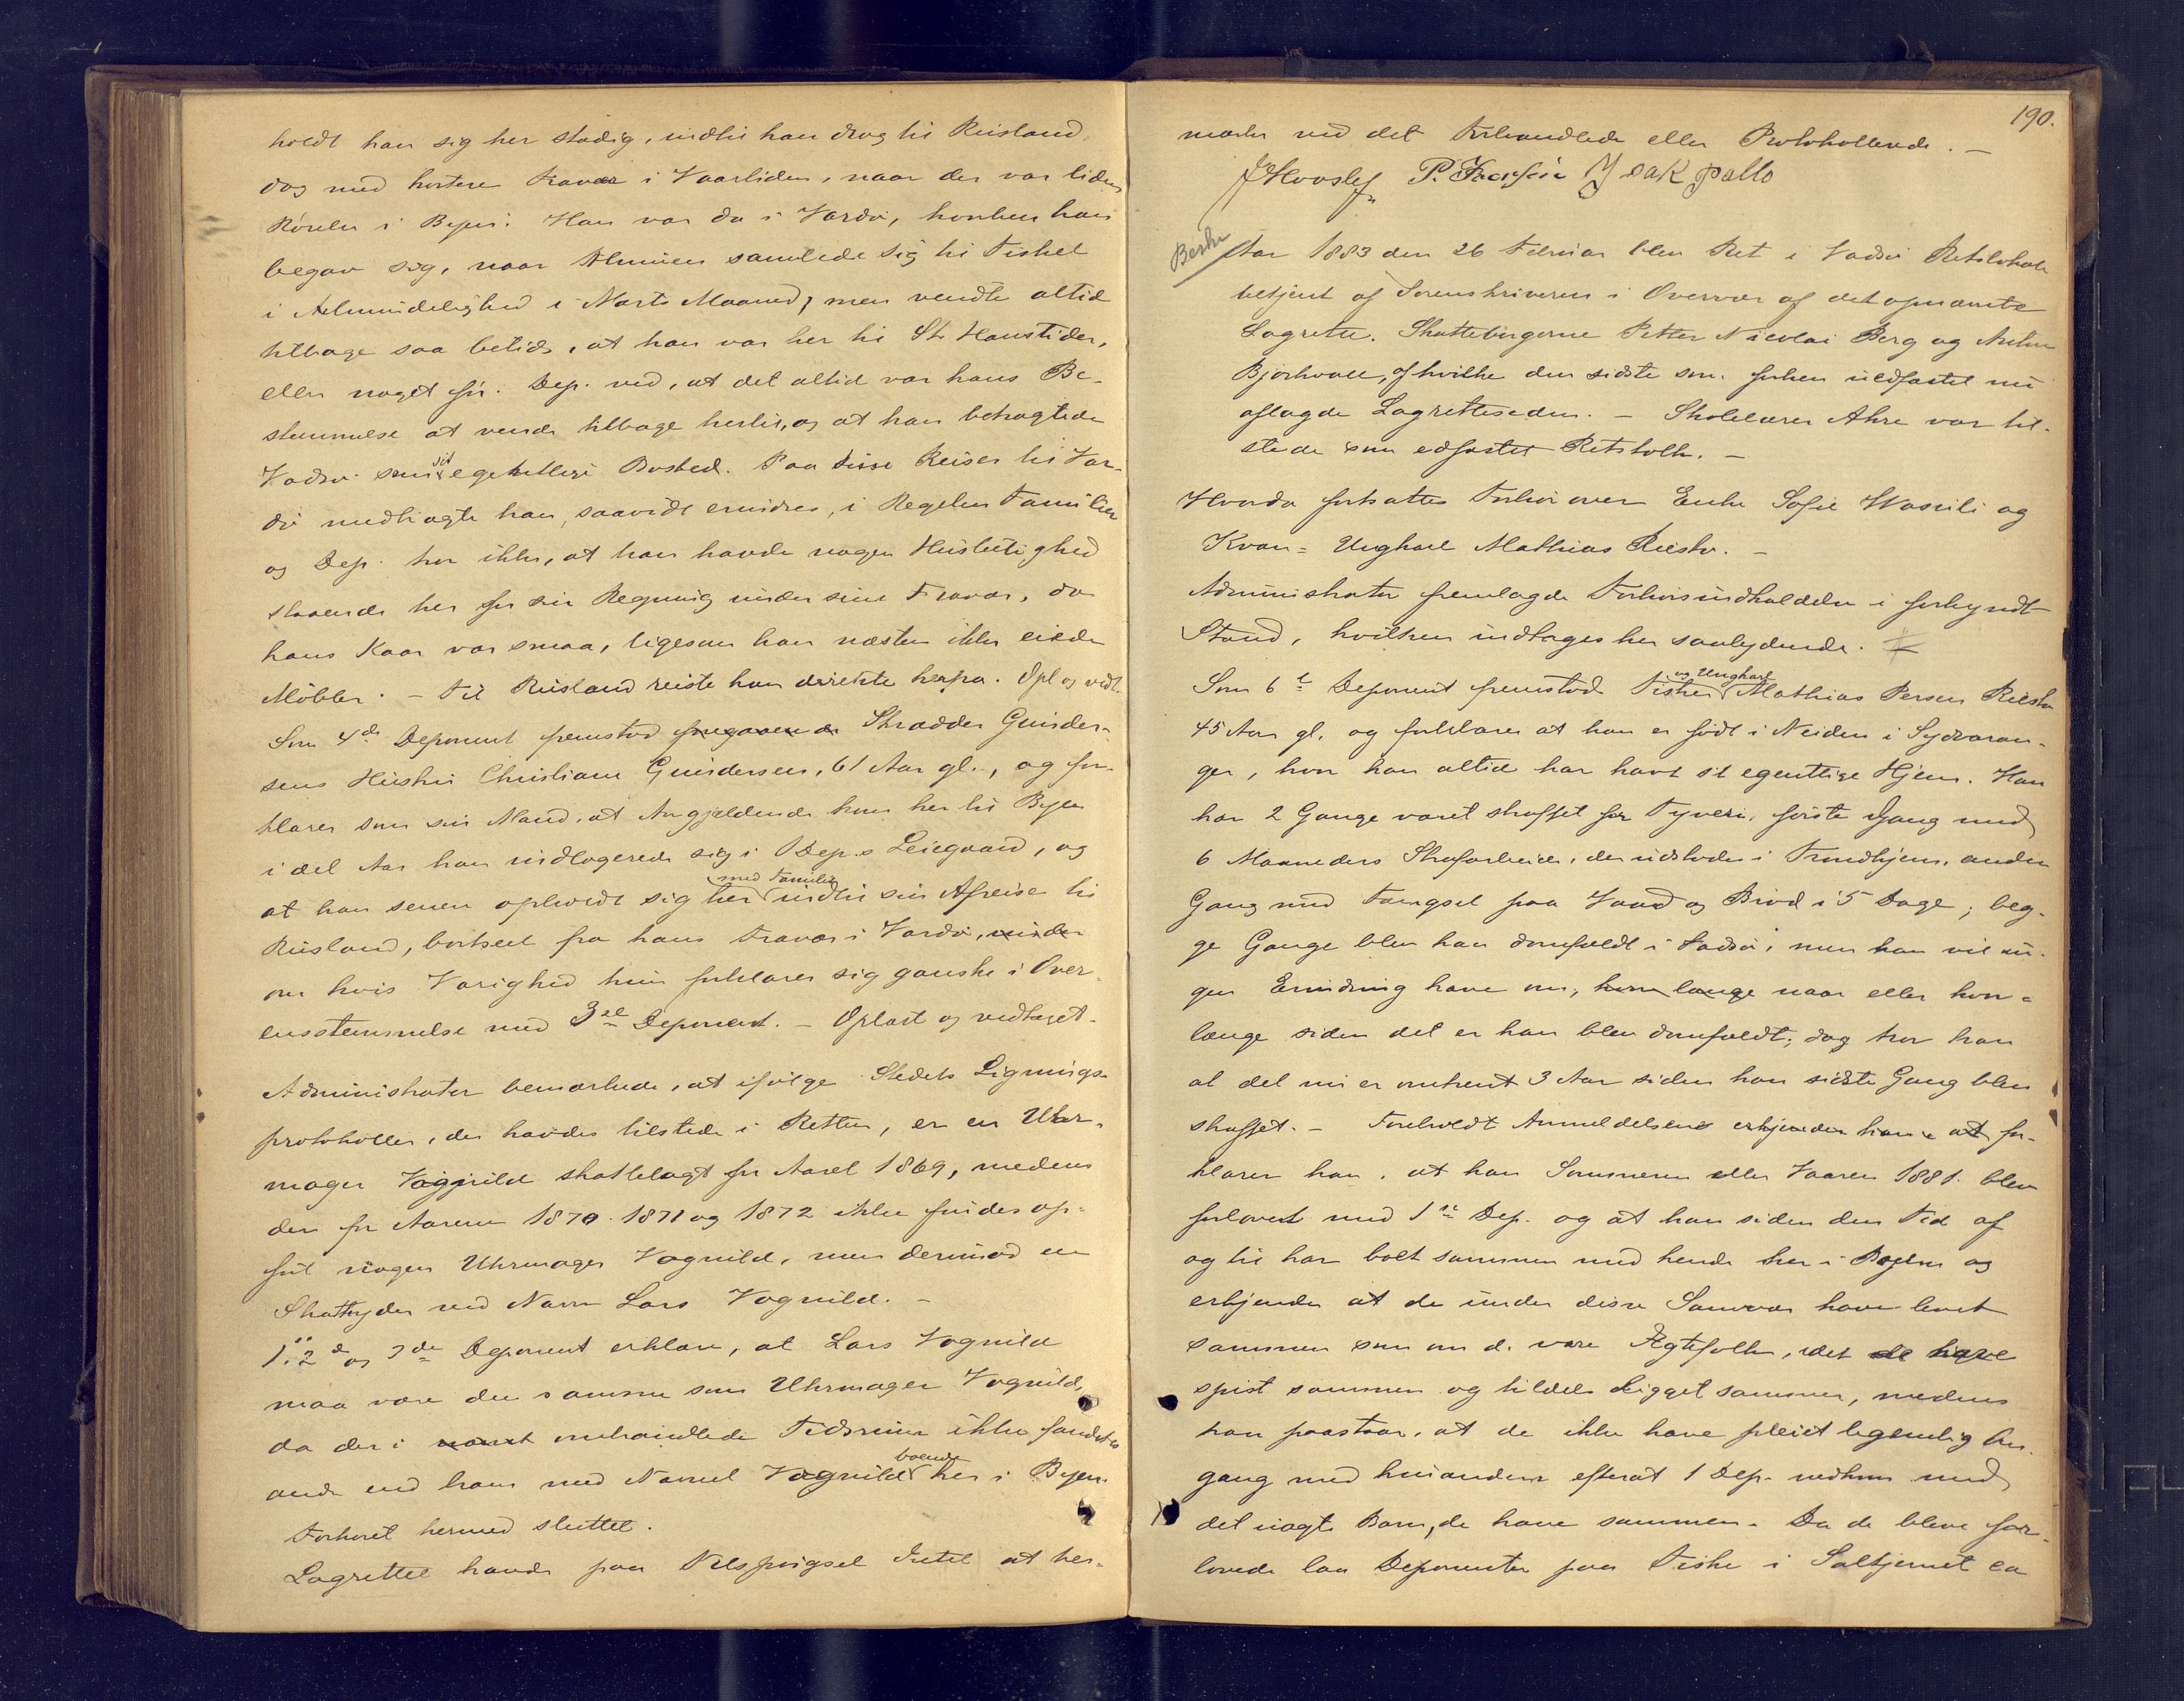 holdt han sig her stadig, indtil han drog til Rusland
dog med kortere Fravær i Vaartiden, naar der var liden
Rørelse i Byen. Han var da i Vardø, hvorhen han
begav sig, naar Almuen samlede sig til Fisket
i Almindelighed i Marts Maaned, men vendte altid
tilbage saa betids, at han var her til St. Hanstider,
eller noget før. Dep. ved, at det altid var hans Be-
stemmelse at vende tilbage hertil, og at han betragtede
Vadsø som sit egentlige Bosted. Paa disse Reiser til Var-
dø medbragte han, saavidt erindres, i Regelen Familien
og Dep. tror ikke, at han havde nogen Husleilighed
staaende her for sin Regning under sine Fravær, da
hans Kaar var smaa, ligesom han næsten ikke eiede
Møbler. – Til Rusland reiste han direkte herfra. Opl og vedt.
Som 4de Deponent fremstod foregaaende Skrædder Gunder-
sens Hustru Christiane Gundersen, 61 Aar gl., og for-
klarer som sin Mand, at Angjældende kom her til Byen
i det Aar han indlogerede sig i Dep.s Leiegaard, og
at han senere opholdt sig her med Familie indtil sin Afreise til
Rusland, bortseet fra hans Fravær i Vardø, under
om hvis Varighed hun forklarer sig ganske i Over-
ensstemmelse med 3die Deponent. – Oplæst og vedtaget.
Administrator bemærkede, at ifølge Stedets Lignings-
protokoller, der havdes tilstede i Retten, er en Uhr-
mager Vognild skattelagt for Aaret 1869, medens
der for Aarene 1870. 1871 og 1872 ikke findes op-
ført nogen Uhrmager Vognild, men derimod en
Skatteyder ved Navn Lars Vognild. –
1. 2d og 3de Deponent erklære, at Lars Vognild
maa være den samme som Uhrmager Vognild,
da der i nævnt omhandlede Tidsrum ikke fandtes
andre end ham med Navnet Vognild boende her i Byen.
Forhøret hermed sluttet.
Lagrettet havde paa Tilspørgsel Intet at be-
190.
mærke ved det Forhandlede eller Protokollerede. –
Isak Pallo
Beskr
Aar 1883 den 26 Februar blev Ret i Vadsø Retslokale
betjent af Sorenskriveren i Overvær af det opnævnte
Lagrette. Skatteborgerne Petter Nicolai Berg og Anton
Bjorkvall, af hvilke den sidste som forhen uedfæstet nu
aflagde Lagretteseden. – Skolelærer Akre var til-
stede som edfæstet Retstolk. –
Hvorda fortsattes Forhør over Enke Sofie Wasuli og
Kvæn- Ungkarl Mathias Riesto. –
Administrator fremlagde Forhørsindkaldelse i forkyndt
Stand, hvilken indtages her saalydende.
Som 6te Deponent fremstod Fisker og Ungkarl Mathias Persen Riesto
45 Aar gl. og forklarer at han er født i Neiden i Sydvaran-
ger, hvor han altid har havt sit egentlige Hjem. Han
har 2 Gange været straffet for Tyveri, første Gang med
6 Maaneders Strafarbeide, der udstodes i Trondhjem, anden
Gang med Fængsel paa Vand og Brød i 5 Dage; beg-
ge Gange blev han domfældt i Vadsø, men han vil in-
gen Erindring have om, hvor længe naar eller hvor-
længe siden det er han blev domfældt; dog tror han
at det nu er omtrent 3 Aar siden han sidste Gang blev
straffet. – Foreholdt Anmeldelsen erkjender han at for-
klarer han, at han Sommeren eller Vaaren 1881 blev
forlovet med 1ste Dep. og at han siden den Tid af
og til har boet sammen med hende her i Byen og
erkjender at de under disse Samvær have levet
sammen som om de være Ægtefolk, idet de have
spist sammen og tildels ligget sammen, medens
han paastaar, at de ikke have pleiet legemlig Om-
gang med hinanden efterat 1 Dep. nedkom med
det uægte Barn, de have sammen. Da de bleve for-
lovede laa Deponenten paa Fiske i Saltjernet ca